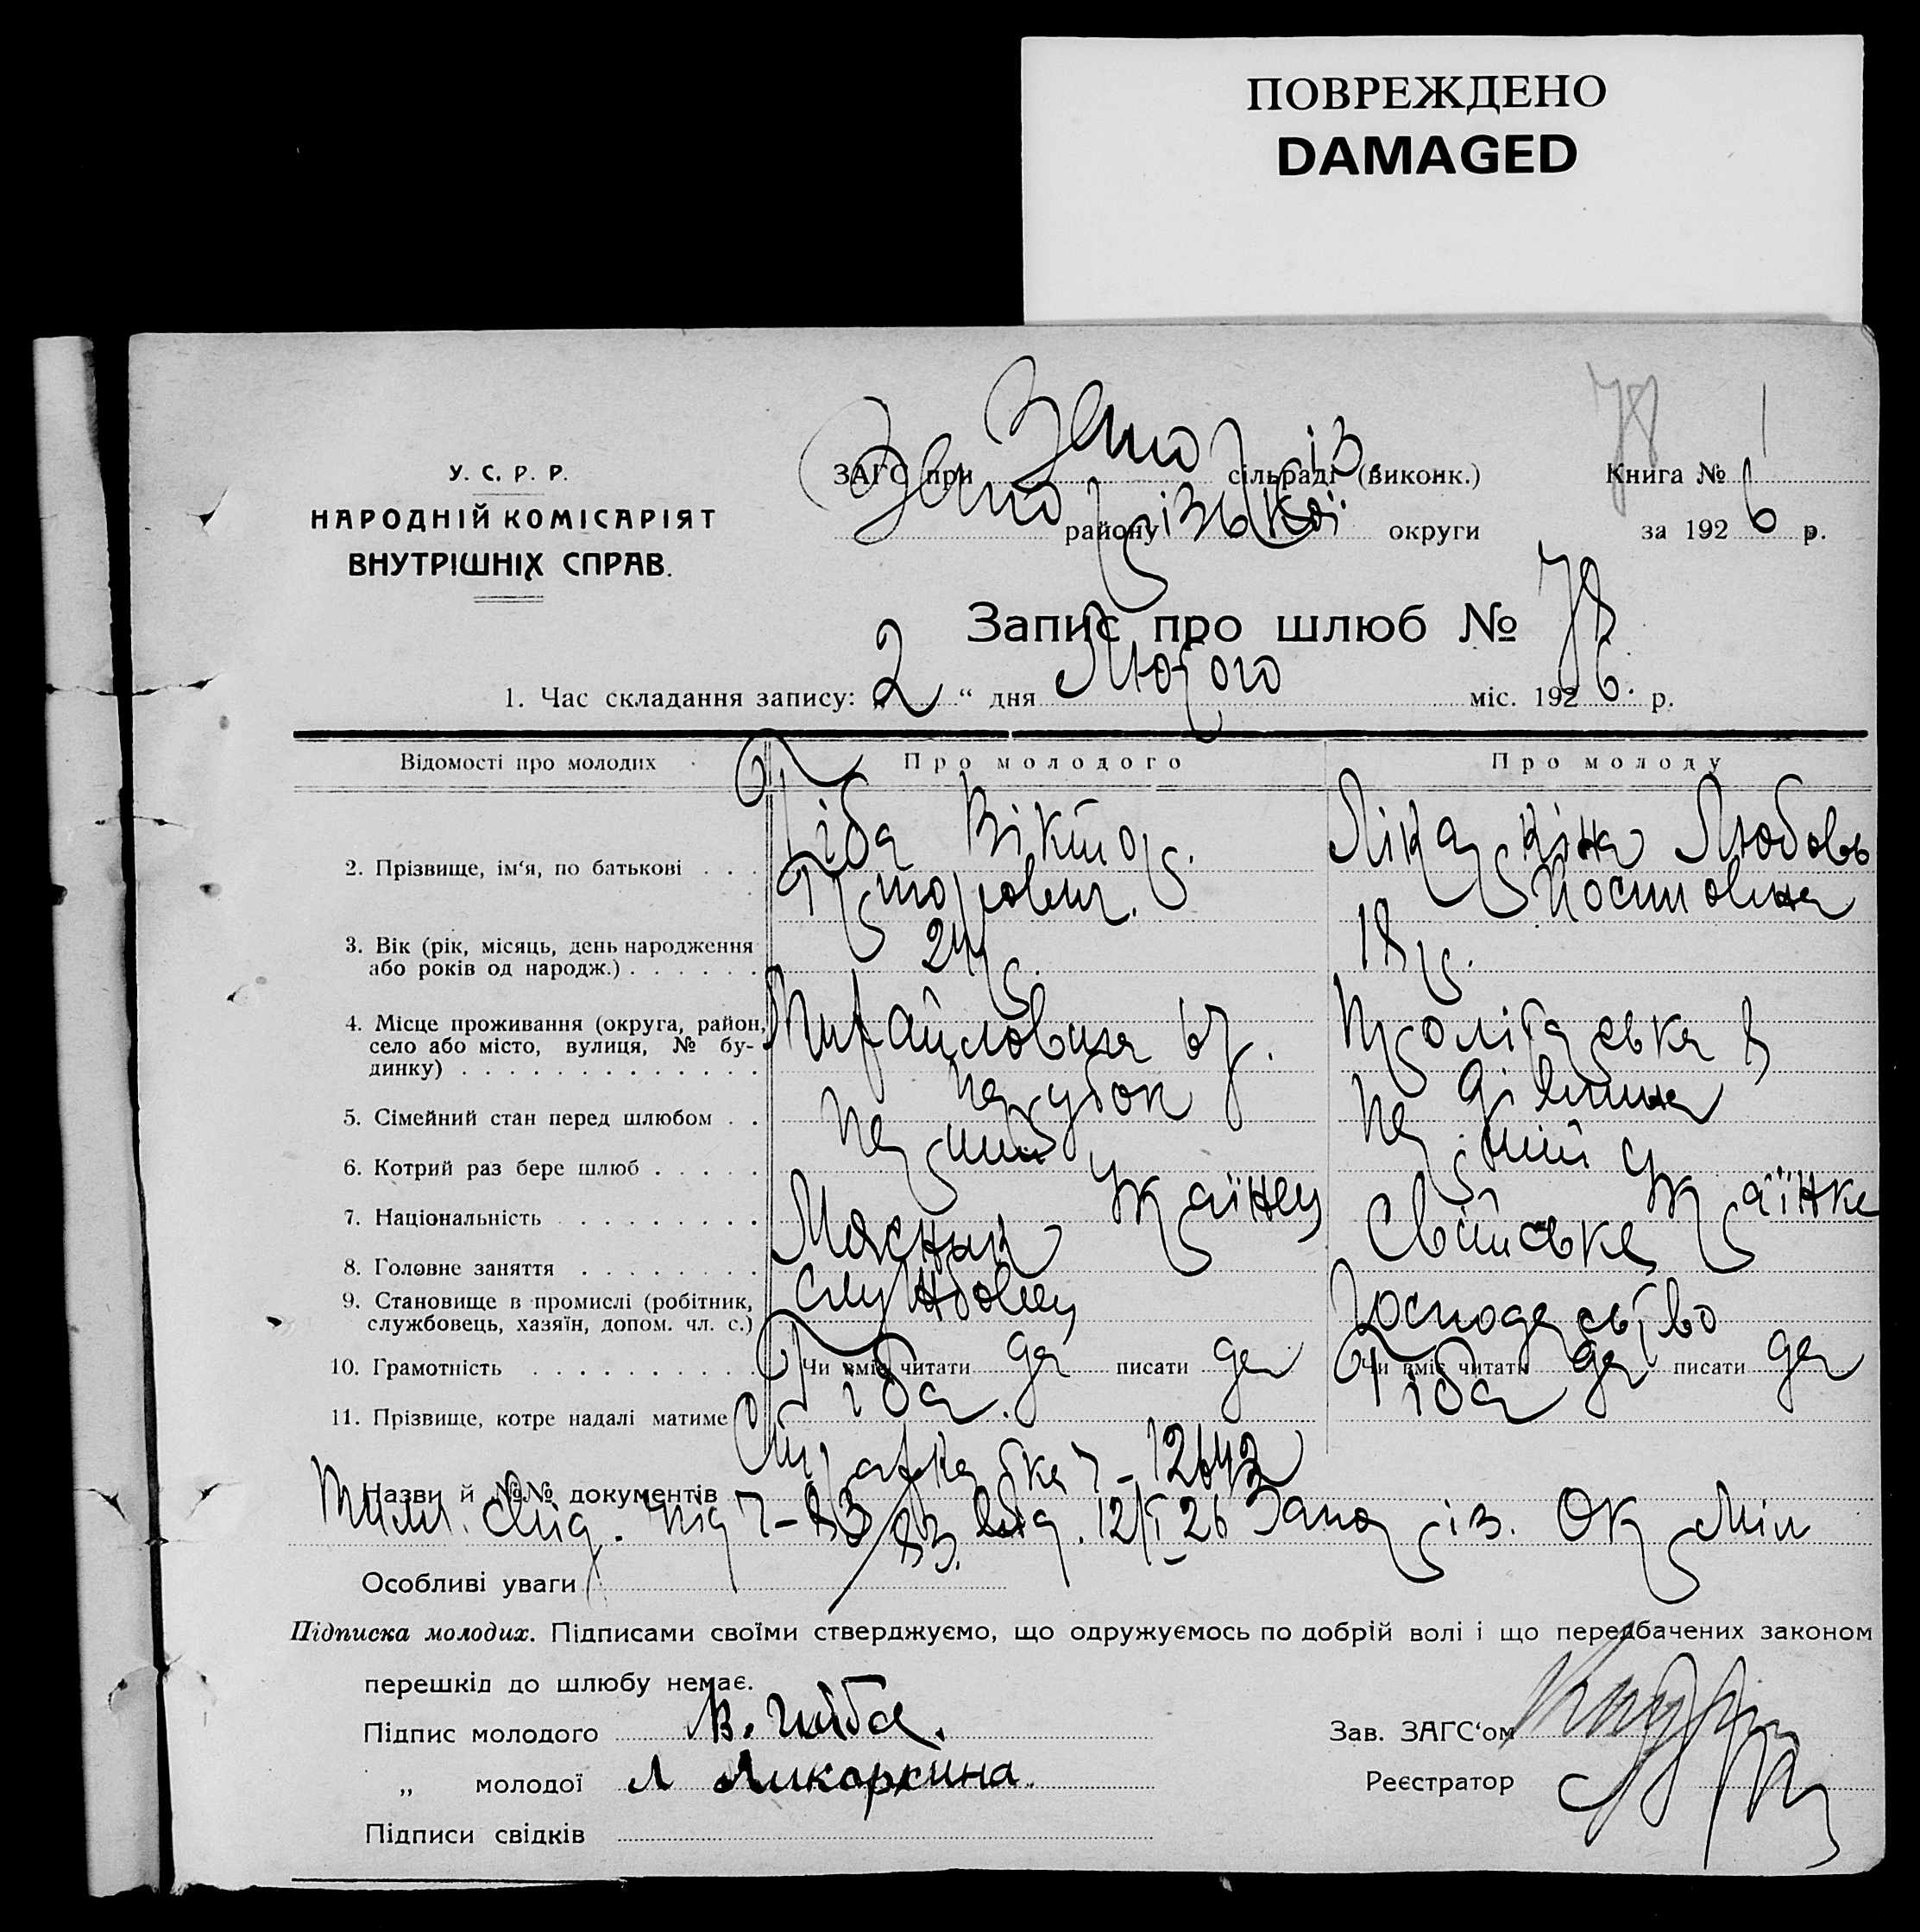 ПОВРЕЖДЕНО
DAMAGED
78
У. С. Р. Р.
НАРОДНІЙ КОМІСАРІЯТ
ВНУТРІШНІХ СПРАВ.
ЗАГС при Запоріз. сільраді (виконк.) Книга № 1
Запорізької району округи за 1926 р.
Запис про шлюб № 78
1. Час складання запису: „2“ дня Лютого міс. 1926. р.
Відомості про молодих Про молодого Про молоду
2. Прізвище, ім‘я, по батькові . . . Гіба Віктор Лікаркіна Любовь
3. Вік (рік, місяць, день народження
або років од народж.) . . . . . . 24 р. 18 р.
4. Місце проживання (округа, район,
село або місто, вулиця, № бу-
динку) . . . . . . . . . . . . . Михайловська
5. Сімейний стан перед шлюбом . . парубок дівчина
6. Котрий раз бере шлюб . . . . . перший перший
7. Національність . . . . . . . . . Українец Українка
8. Головне заняття . . . . . . . . Свійське
9. Становище в промислі (робітник,
службовець, хазяїн, допом. чл. с.) службовец господарство
10. Грамотність . . . . . . . . . . Чи вміє читати да писати да Чи вміє читати да писати да
11. Прізвище, котре надалі матиме Гіба. Гіба
Назви й №№ документів 12642
12/I 26 Запоріз. Окр
Особливі уваги
Підписка молодих. Підписами своїми стверджуємо, що одружуємось по добрій волі і що передбачених законом
перешкід до шлюбу немає.
Підпис молодого В. Гиба. Зав. ЗАГС‘ом
„ молодої Л Ликаркина. Реєстратор
Підписи свідків